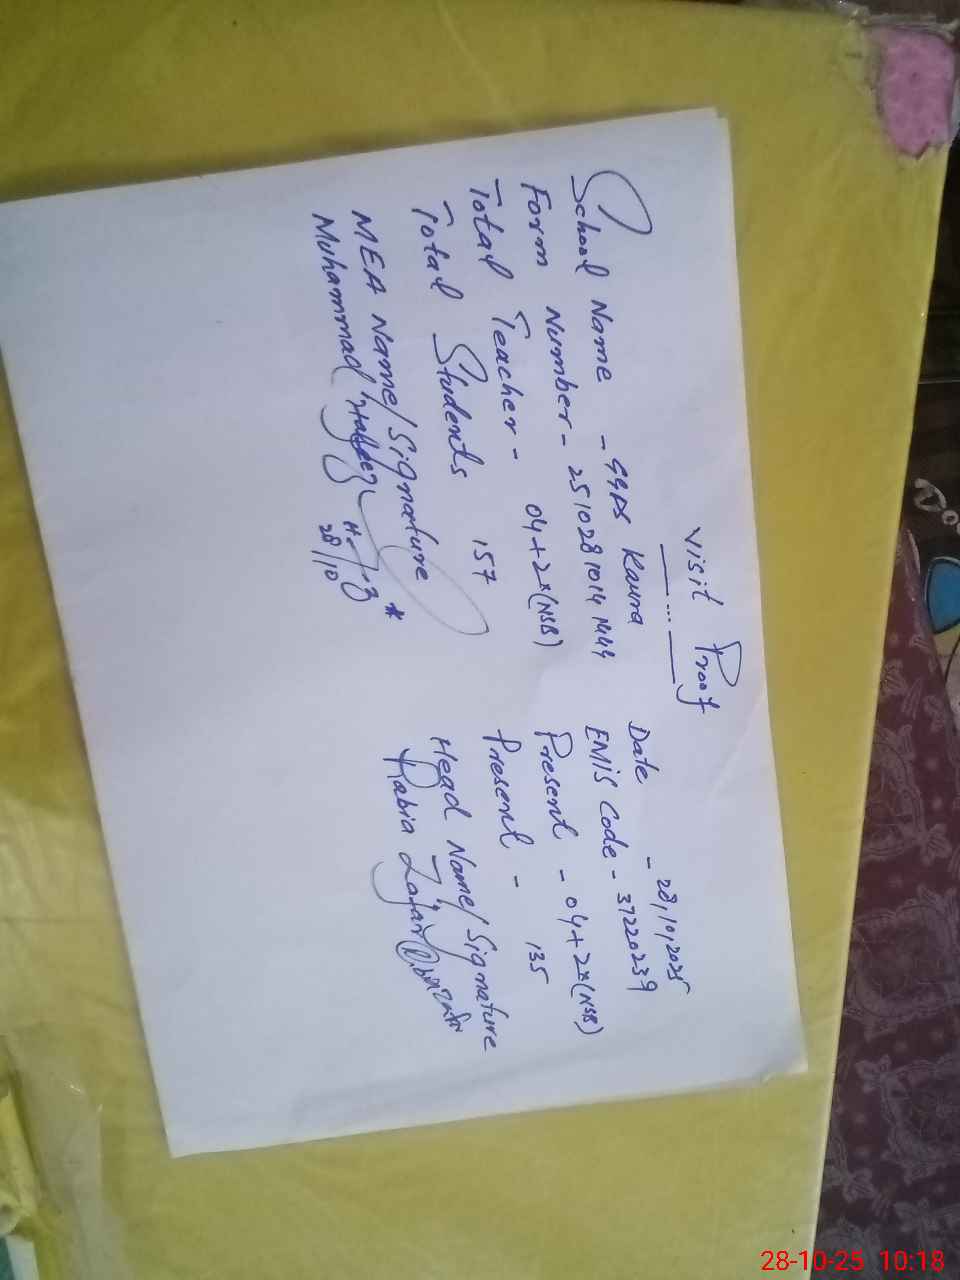 Visit Proof
School Name - GGPS Kaura
Date - 28,10,2025
Form Number - 25102810141444
EMIS Code - 37220239
Total Teacher - 04+2*(NSB)
Present - 04+2*(NSB)
Total Students 157
Present - 135
MEA Name/Signature
Head Name/Signature
Muhammad Hafeez
Rabia Zafar
28/10
28-10-25 10:18